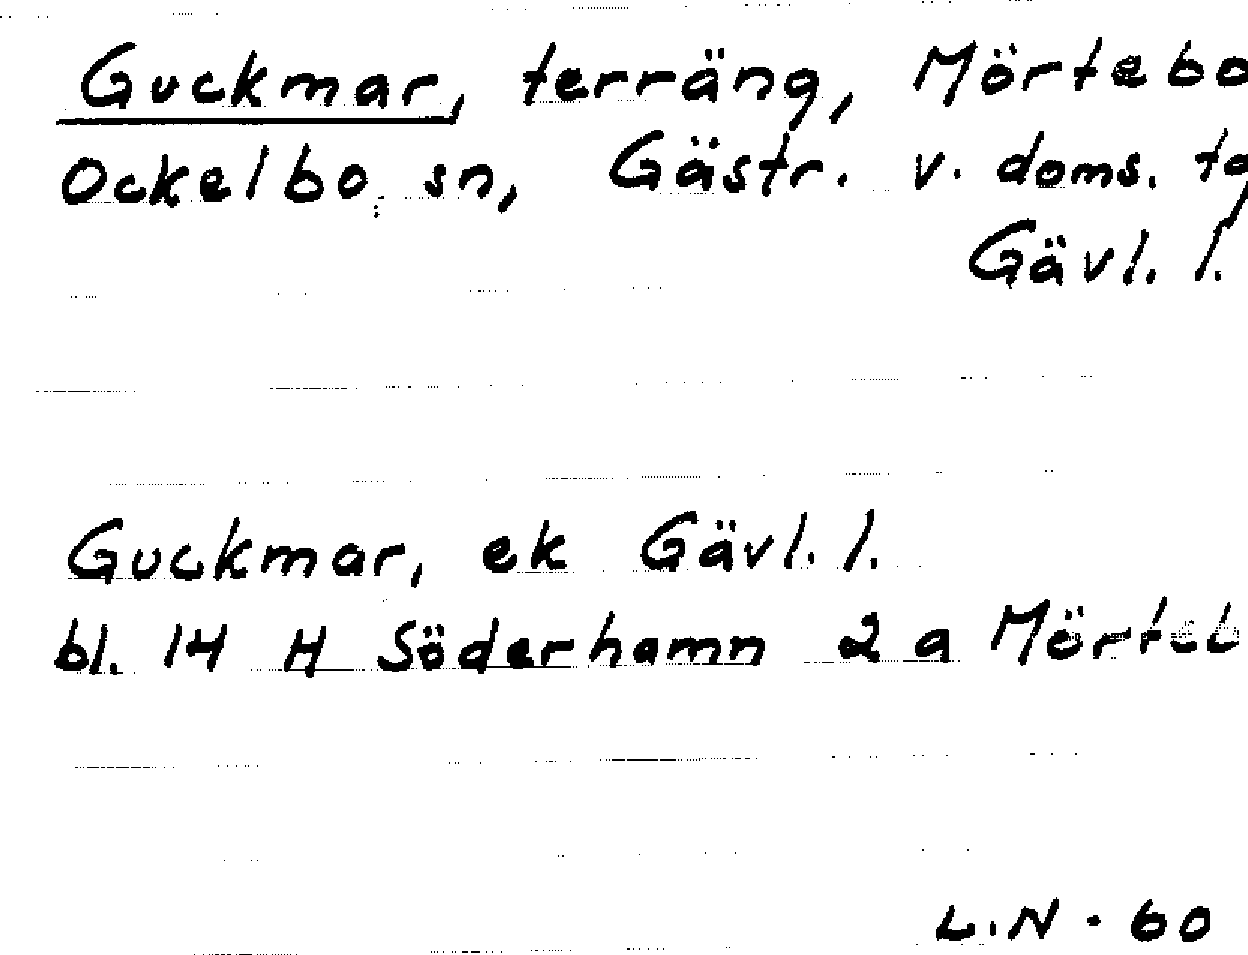 Guckmar, terräng, Mörtebo
Ockelbo sn, Gästr. v. doms. tg
Gävl. l.
Guckmar, ek Gävl. l.
bl. 14 H Söderhamn 2 a Mörteb
L.N - 60